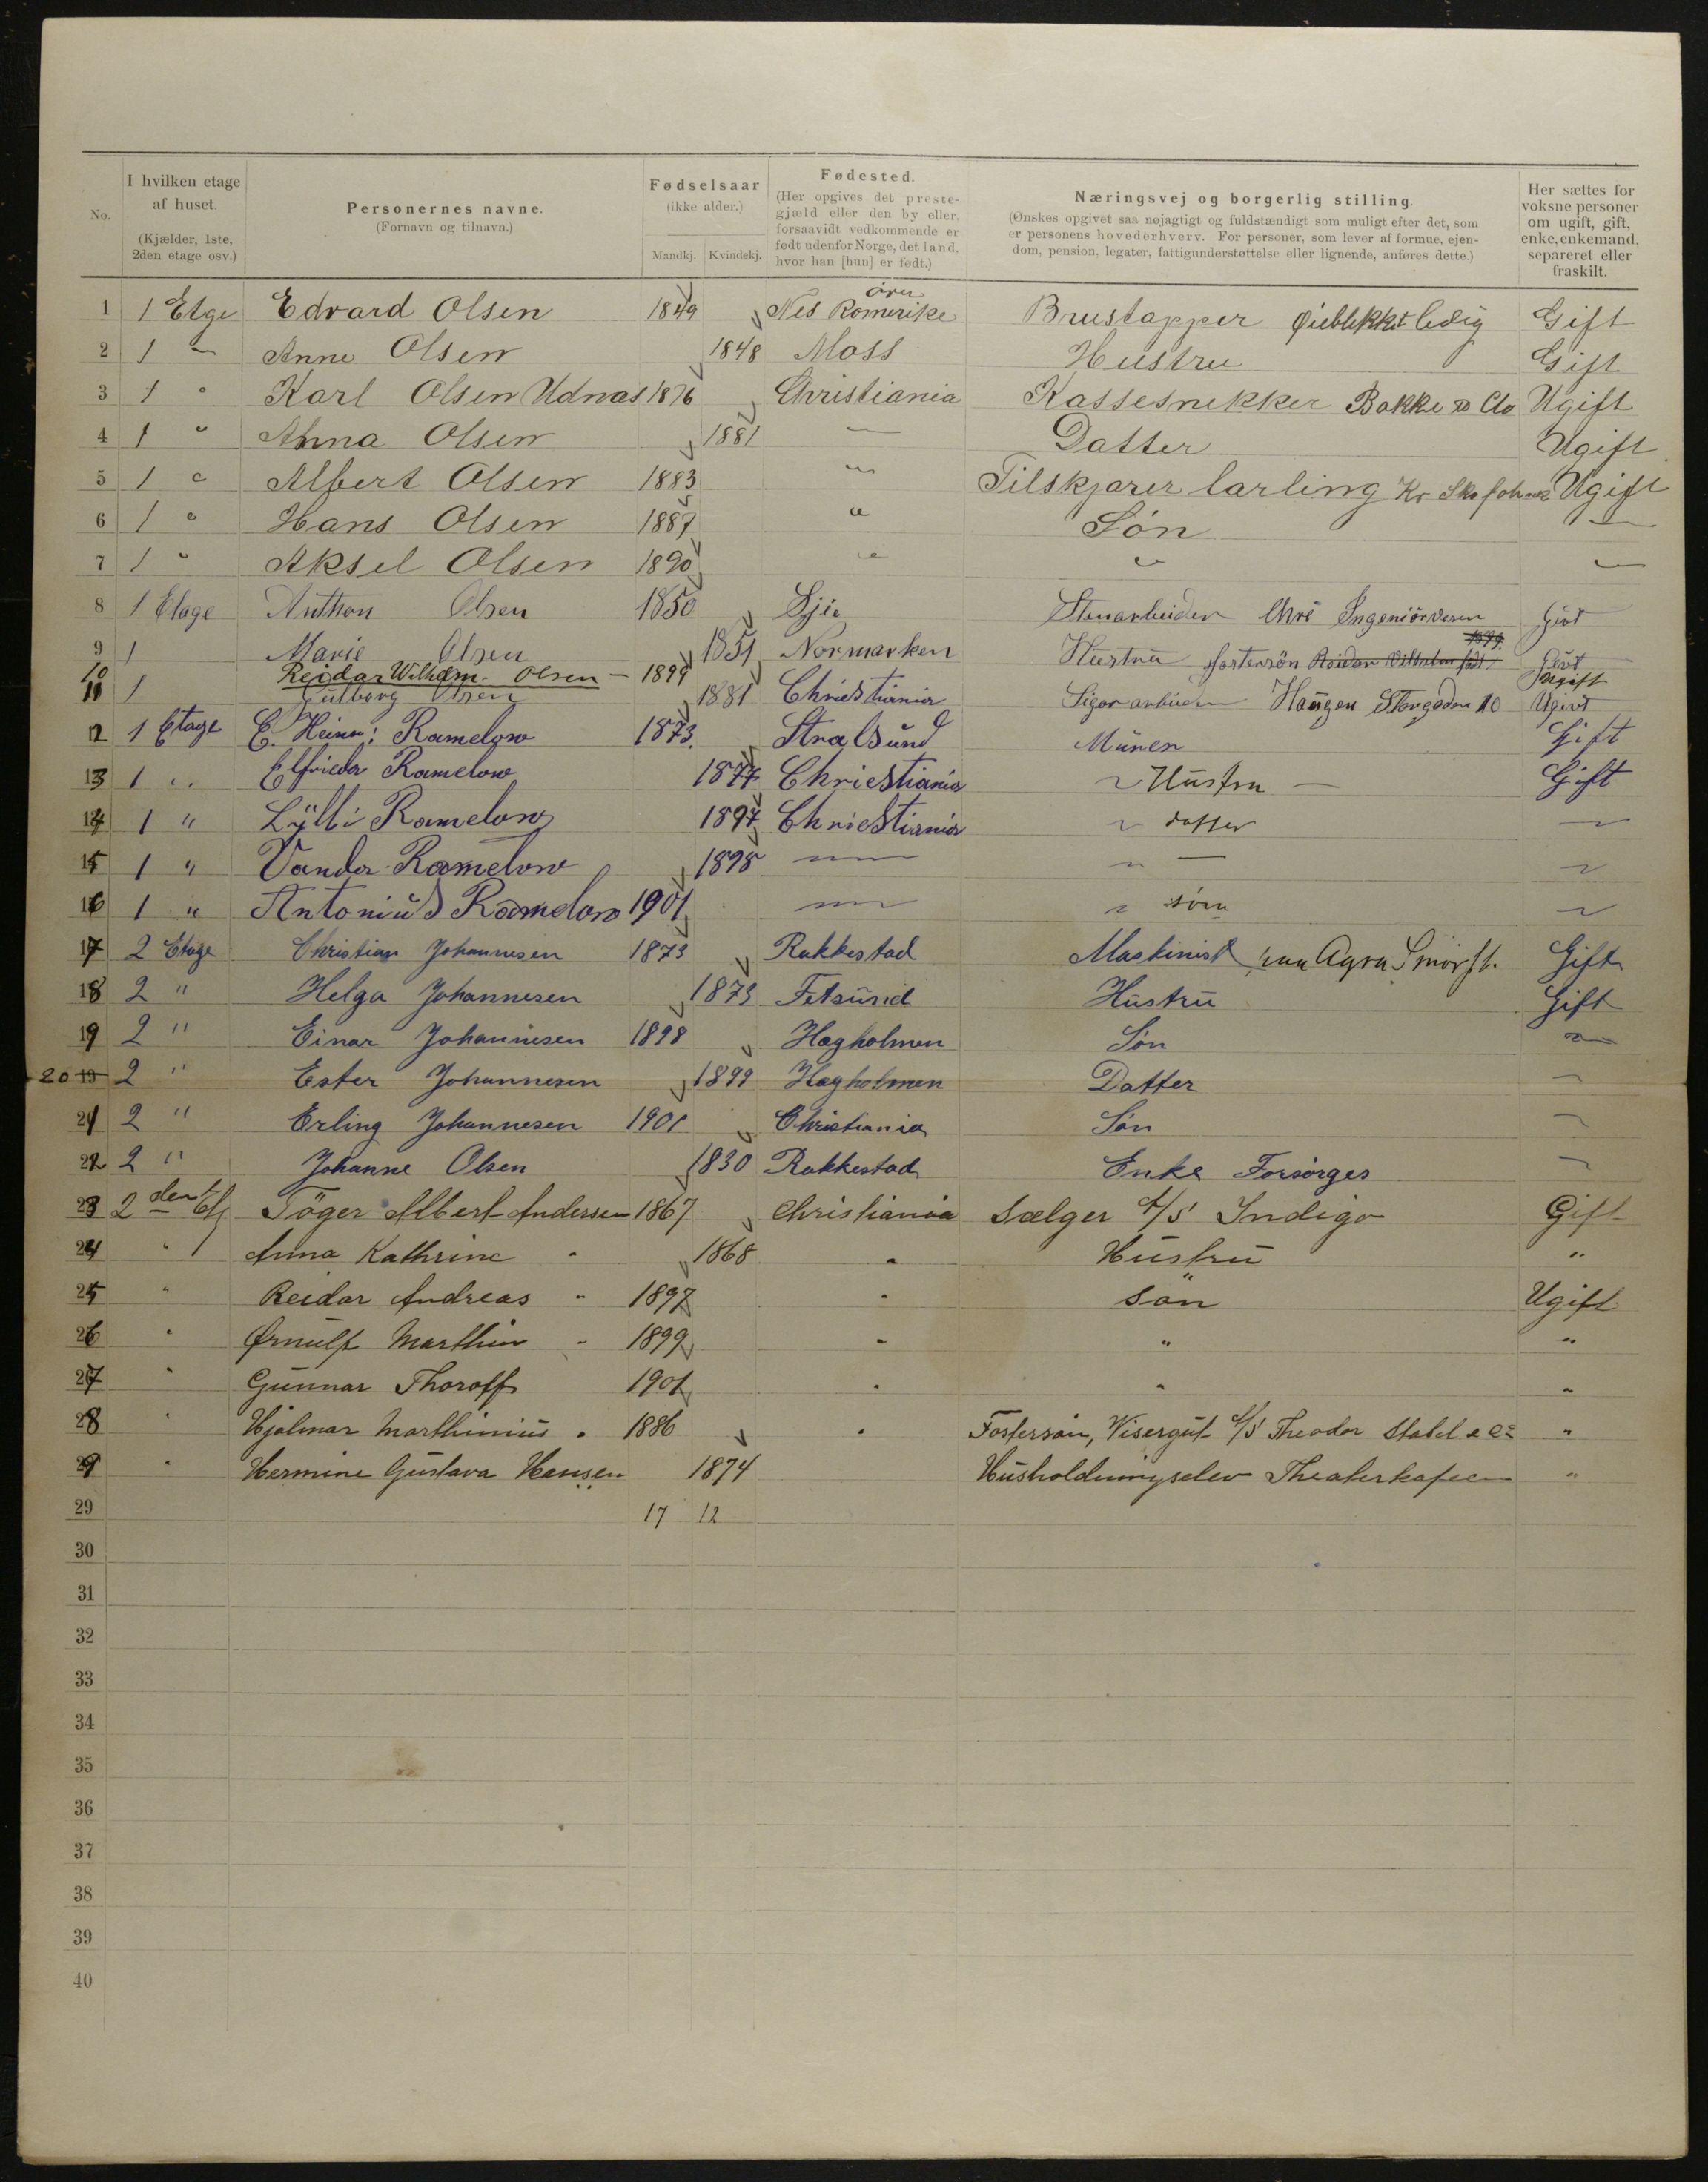 No.
I hvilken etage af huset.
(Kjælder, 1ste, 2den etage osv.)
Personernes navne.
(Fornavn og tilnavn.)
Fødselsaar
(ikke alder.)
Mandkj. Kvindekj.
Fødested.
(Her opgives det præste-
gjæld eller den by eller,
forsaavidt vedkommende er
født udenfor Norge, det land,
hvor han [hun] er født.)
Næringsvej og borgerlig stilling.
(Ønskes opgivet saa nøjagtigt og fuldstændigt som muligt efter det, som
er personens hovederhverv. For personer, som lever af formue, ejen-
dom, pension, legater, fattigunderstøttelse eller lignende, anføres dette.)
Her sættes for
voksne personer
om ugift, gift,
enke, enkemand,
separeret eller
fraskilt.
1 1 Etge Edvard Olsen 1849 Nes Romerike Brustapper Øieblikket ledig Gift
2 1 " Anne Olsen 1848 Moss Hustru Gift
3 1 " Karl Olsen Udnæs 1876 Christiania Kassesnekker Bakke & Co Ugift
4 1 " Anna Olsen 1881 " Datter Ugift
5 1 " Albert Olsen 1883 " Tilskjærer lærling Kr Ugift
6 1 " Hans Olsen 1887 " Søn "
7 1 " Aksel Olsen 1890 " " "
8 1 Etage Anthon Olsen 1850 Stenarbeider Givt
9 1 Marie Olsen 1851 Normarken Hustru fostersön Reidar Vilhelm född 1899 Givt
10 Reidar Wilhelm Olsen 1899 Ugift
11 1 Gulborg Olsen 1881 Christiania Sigararbeider Haugen Storgaden 10 Ugivt
12 1 Etage C. Heinr: Ramelow 1873 Stralsund Murer Gift
13 1 " Elfrieda Ramelow 1877 Christiania " Hustru Gift
14 1 " Lylli Ramelow 1897 Christiania " datter "
15 1 " Vanda Ramelow 1898 " " "
16 1 " Antonius Ramelow 1901 " " søn "
17 2 Etage Christian Johannesen 1873 Rakkestad Maskinist paa Agra Smørf. Gift
18 2 " Helga Johannesen 1873 Fetsund Hustru Gift
19 2 " Einar Johannesen 1898 Hægholmen Søn "
20 2 " Ester Johannesen 1899 Hægholmen Datter "
21 2 " Erling Johannesen 1901 Christiania Søn "
22 2 " Johanne Olsen 1830 Rakkestad Enke Forsørges "
23 2den Etg Töger Albert Andersen 1867 Christiania Sælger A/S Indigo Gift
24 " Anna Kathrine " 1868 " Hustru "
25 " Reidar Andreas " 1897 " Søn Ugift
26 " Ørnulf Marthin " 1899 " " "
27 " Gunnar Thoralf 1901 " " "
28 " Hjalmar Marthinius " 1886 " Fostersøn, Visergut A/S Theodor Stabel & Co "
29 " Hermine Gustava Hansen 1874 Husholdningselev Theaterkafeen "
29 17 12
30
31
32
33
34
35
36
37
38
39
40